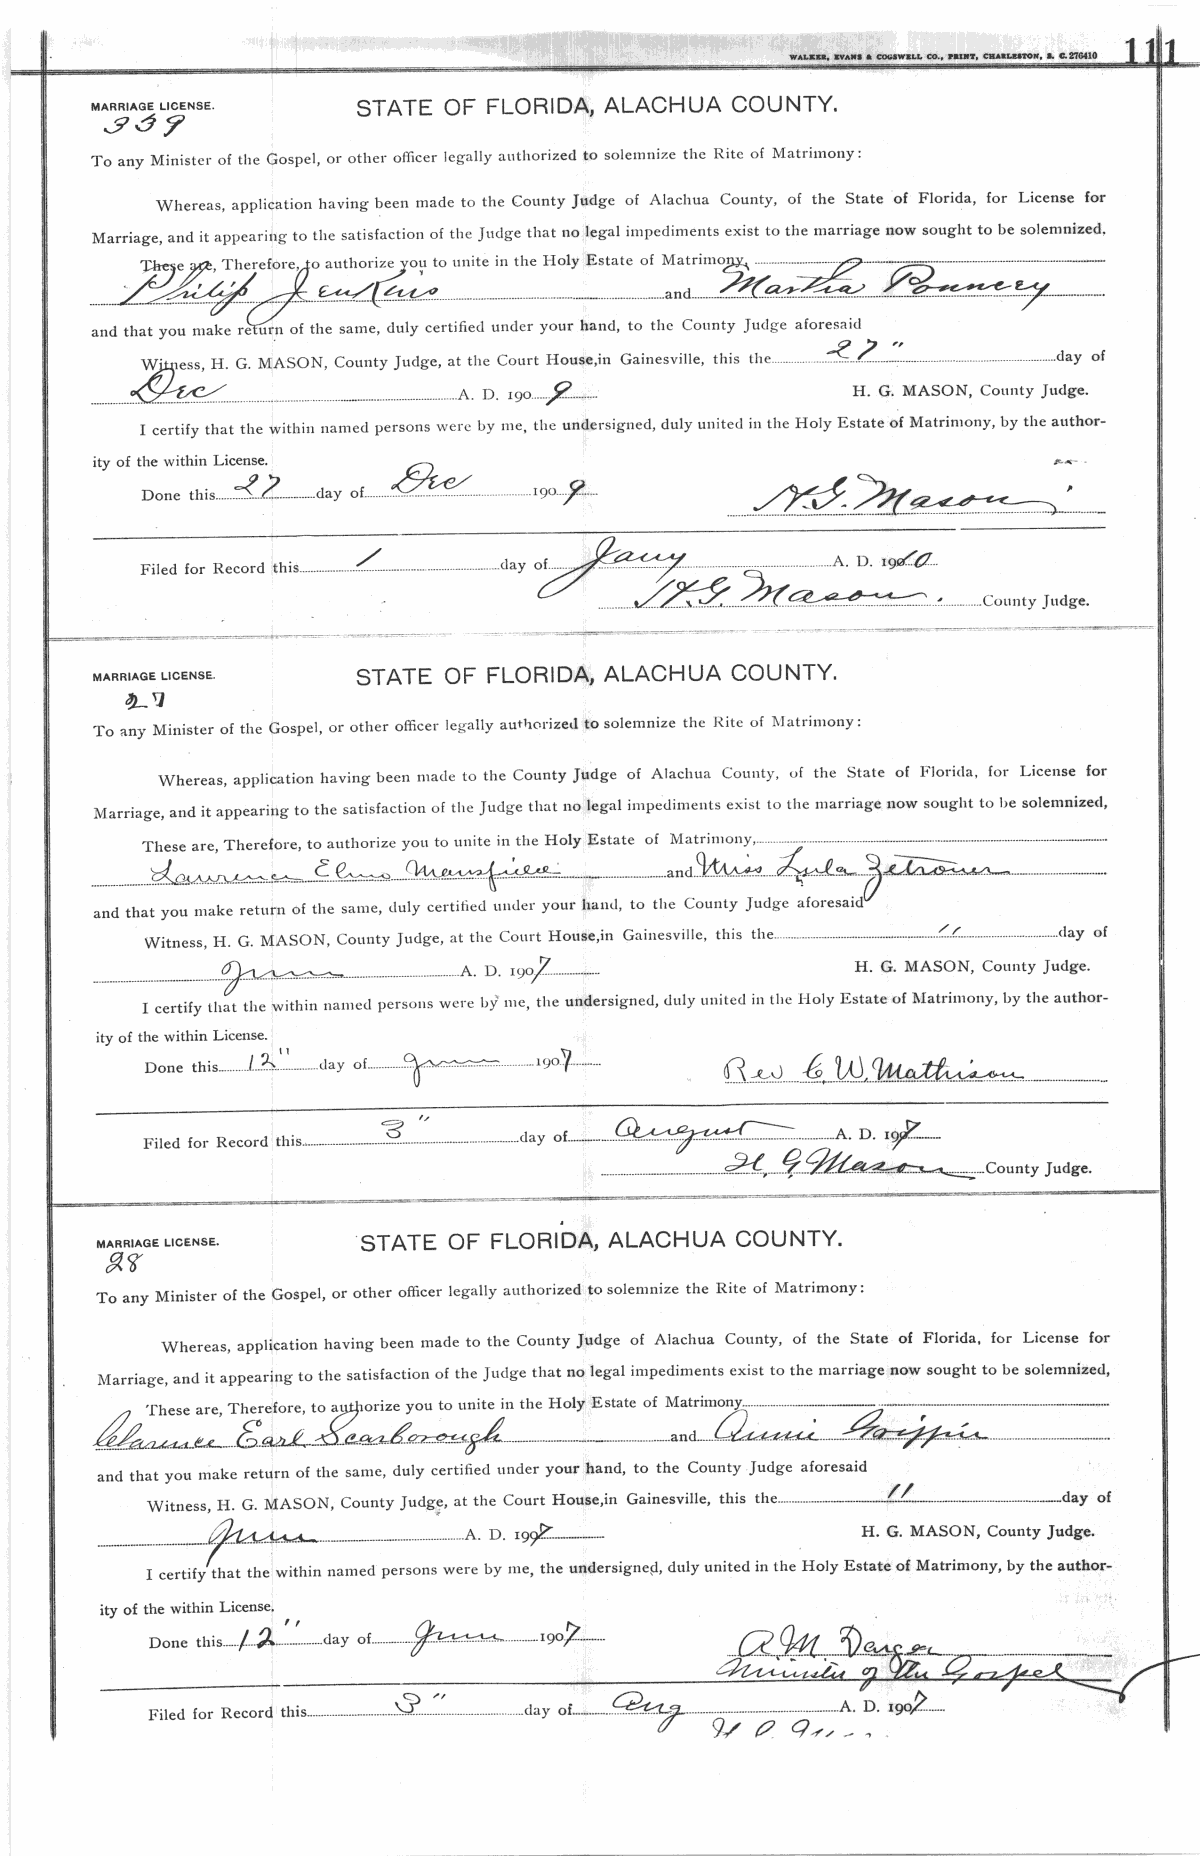 WALKER, EVANS & COGSWELL CO., PRINT, CHARLESTON, S. C. 276410 111
MARRIAGE LICENSE. STATE OF FLORIDA, ALACHUA COUNTY.
339
To any Minister of the Gospel, or other officer legally authorized to solemnize the Rite of Matrimony:
Whereas, application having been made to the County Judge of Alachua County, of the State of Florida, for License for
Marriage, and it appearing to the satisfaction of the Judge that no legal impediments exist to the marriage now sought to be solemnized,
These are, Therefore, to authorize you to unite in the Holy Estate of Matrimony,
Philip Jenkins and Martha
and that you make return of the same, duly certified under your hand, to the County Judge aforesaid
Witness, H. G. MASON, County Judge, at the Court House, in Gainesville, this the 27" day of
Dec A. D. 190 9 H. G. MASON, County Judge.
I certify that the within named persons were by me, the undersigned, duly united in the Holy Estate of Matrimony, by the author-
ity of the within License.
Done this 27 day of Dec 190 9 H. G. Mason
Filed for Record this 1 day of Jany A. D. 1910
H. G. Mason. County Judge.
MARRIAGE LICENSE. STATE OF FLORIDA, ALACHUA COUNTY.
27
To any Minister of the Gospel, or other officer legally authorized to solemnize the Rite of Matrimony:
Whereas, application having been made to the County Judge of Alachua County, of the State of Florida, for License for
Marriage, and it appearing to the satisfaction of the Judge that no legal impediments exist to the marriage now sought to be solemnized,
These are, Therefore, to authorize you to unite in the Holy Estate of Matrimony,
Laurence Elmo Mansfield and Miss Lula Zetrouer
and that you make return of the same, duly certified under your hand, to the County Judge aforesaid
Witness, H. G. MASON, County Judge, at the Court House, in Gainesville, this the 11 day of
June A. D. 1907 H. G. MASON, County Judge.
I certify that the within named persons were by me, the undersigned, duly united in the Holy Estate of Matrimony, by the author-
ity of the within License.
Done this 12" day of June 1907 Rev C. W. Mathison
Filed for Record this 3" day of August A. D. 1907
H. G. Mason County Judge.
MARRIAGE LICENSE. STATE OF FLORIDA, ALACHUA COUNTY.
28
To any Minister of the Gospel, or other officer legally authorized to solemnize the Rite of Matrimony:
Whereas, application having been made to the County Judge of Alachua County, of the State of Florida, for License for
Marriage, and it appearing to the satisfaction of the Judge that no legal impediments exist to the marriage now sought to be solemnized,
These are, Therefore, to authorize you to unite in the Holy Estate of Matrimony
Clarence Earl Scarborough and Annie Griffin
and that you make return of the same, duly certified under your hand, to the County Judge aforesaid
Witness, H. G. MASON, County Judge, at the Court House, in Gainesville, this the 11 day of
June A. D. 1907 H. G. MASON, County Judge.
I certify that the within named persons were by me, the undersigned, duly united in the Holy Estate of Matrimony, by the author-
ity of the within License.
Done this 12" day of June 1907 A. M.
Minister of the Gospel
Filed for Record this 3" day of Aug A. D. 1907